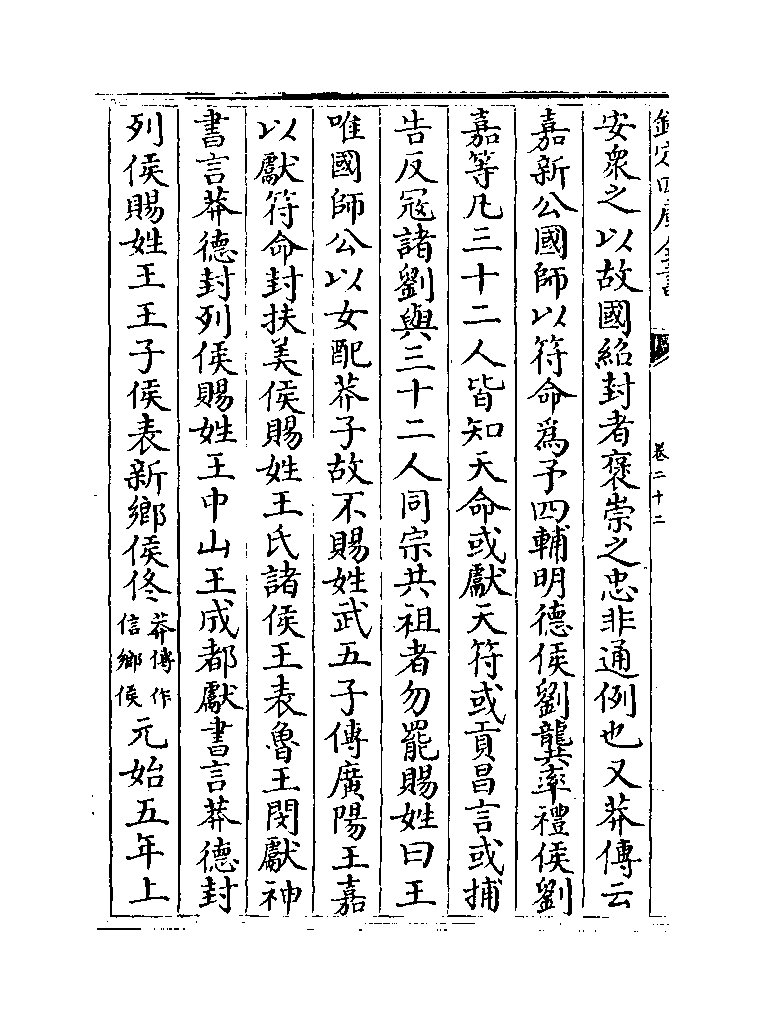 欽定四庫全書
卷二十二
安衆之以故國紹封者褒崇之忠非通例也又莽傳云
嘉新公國師以符命爲予四輔明德侯劉龔率禮侯劉
嘉等凡三十二人皆知天命或獻天符或貢昌言或捕
告反冦諸劉與三十二人同宗共祖者勿罷賜姓曰王
唯國師公以女配莽子故不賜姓武五子傳廣陽王嘉
以獻符命封扶美侯賜姓王氏諸侯王表魯王閔獻神
書言莽德封列侯賜姓王中山王成都獻書言莽德封
列侯賜姓王王子侯表新鄉侯佟莽傳作信鄉侯元始五年上